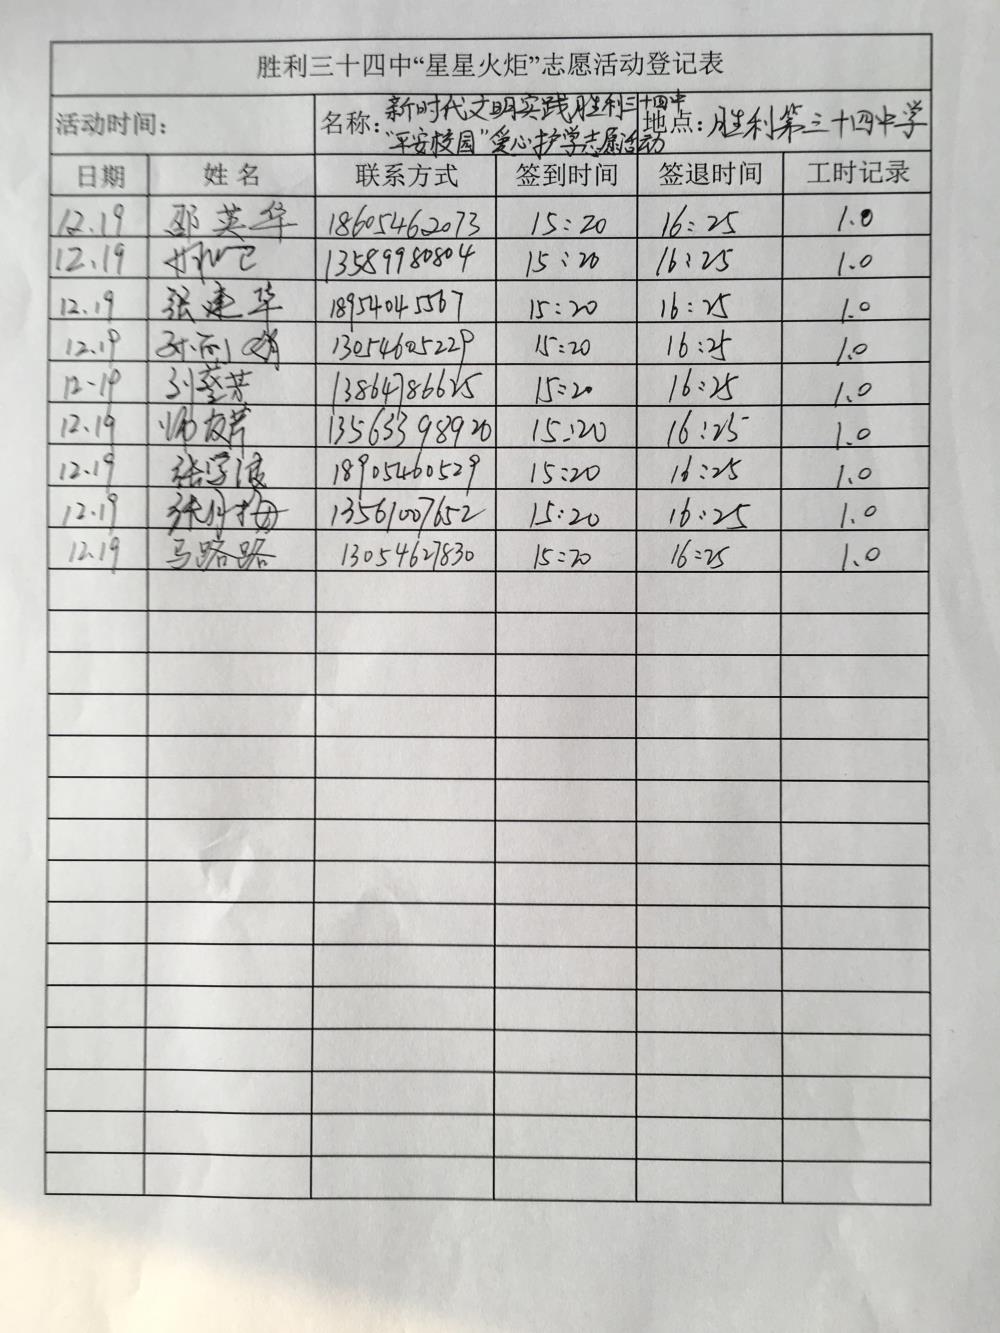 胜利三十四中“星星火炬”志愿活动登记表
活动时间： 名称： 新时代文明实践胜利三十四中 地点：胜利第三十四中学
“平安校园”爱心护学志愿活动
日期 姓名 联系方式 签到时间 签退时间 工时记录
12.19 邵英华 18605462073 15:20 16:25 1.0
12.19 13589980804 15:20 16:25 1.0
12.19 张建华 18954045567 15:20 16:25 1.0
12.19 13054605229 15:20 16:25 1.0
12-19 刘登芳 13864786625 15:20 16:25 1.0
12.19 师友芹 13563398920 15:20 16:25 1.0
12.19 张学波 18905460529 15:20 16:25 1.0
12.19 张月梅 13561007652 15:20 16:25 1.0
12.19 马路路 13054627830 15:20 16:25 1.0